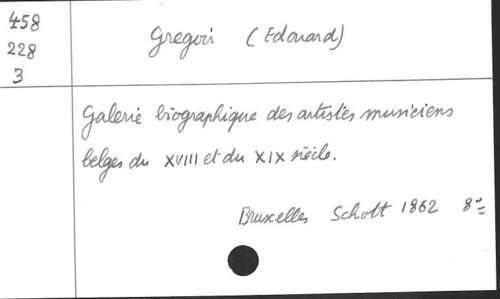 458
228
3
Gregoir (Edouard)
Galerie biographique des artistes musiciens
belges du XVIII et du XIX siècle.
Bruxelles Schott 1862 8º